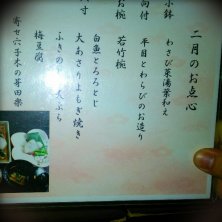 二月のお点心
小鉢 わさび菜湯葉和え
向付 平目とわらびのお造り
お椀 若竹椀
寸 白魚とろろとじ
大あさりよもぎ焼き
ふきの
天ぷら
梅豆腐
寄せ六子木の芽田楽